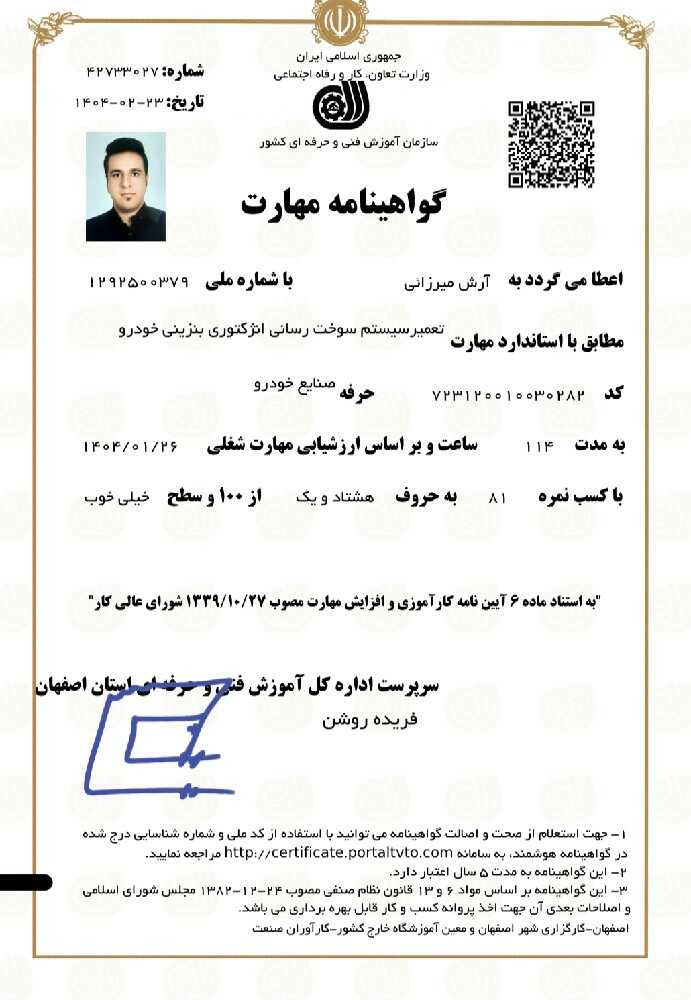 جمهوری اسلامی ایران
وزارت تعاون، کار و رفاه اجتماعی
سازمان آموزش فنی و حرفه ای کشور
شماره: ۴۲۷۳۳۰۲۷
تاریخ: ۱۴۰۴-۰۲-۲۳
گواهینامه مهارت
اعطا می گردد به آرش میرزائی با شماره ملی ۱۲۹۲۵۰۰۳۷۹
مطابق با استاندارد مهارت تعمیرسیستم سوخت رسانی انژکتوری بنزینی خودرو
کد ۷۲۳۱۲۰۰۱۰۰۳۰۲۸۲ حرفه صنایع خودرو
به مدت ۱۱۴ ساعت و بر اساس ارزشیابی مهارت شغلی ۱۴۰۴/۰۱/۲۶
با کسب نمره ۸۱ به حروف هشتاد و یک از ۱۰۰ و سطح خیلی خوب
"به استناد ماده ۶ آیین نامه کارآموزی و افزایش مهارت مصوب ۱۳۳۹/۱۰/۲۷ شورای عالی کار"
سرپرست اداره کل آموزش فنی و حرفه ای استان اصفهان
فریده روشن
۱- جهت استعلام از صحت و اصالت گواهینامه می توانید با استفاده از کد ملی و شماره شناسایی درج شده
در گواهینامه هوشمند، به سامانه http://certificate.portaltvto.com مراجعه نمایید.
۲- این گواهینامه به مدت ۵ سال اعتبار دارد.
۳- این گواهینامه بر اساس مواد ۶ و ۱۳ قانون نظام صنفی مصوب ۲۴-۱۲-۱۳۸۲ مجلس شورای اسلامی
و اصلاحات بعدی آن جهت اخذ پروانه کسب و کار قابل بهره برداری می باشد.
اصفهان-کارگزاری شهر اصفهان و معین آموزشگاه خارج کشور-کارآوران صنعت